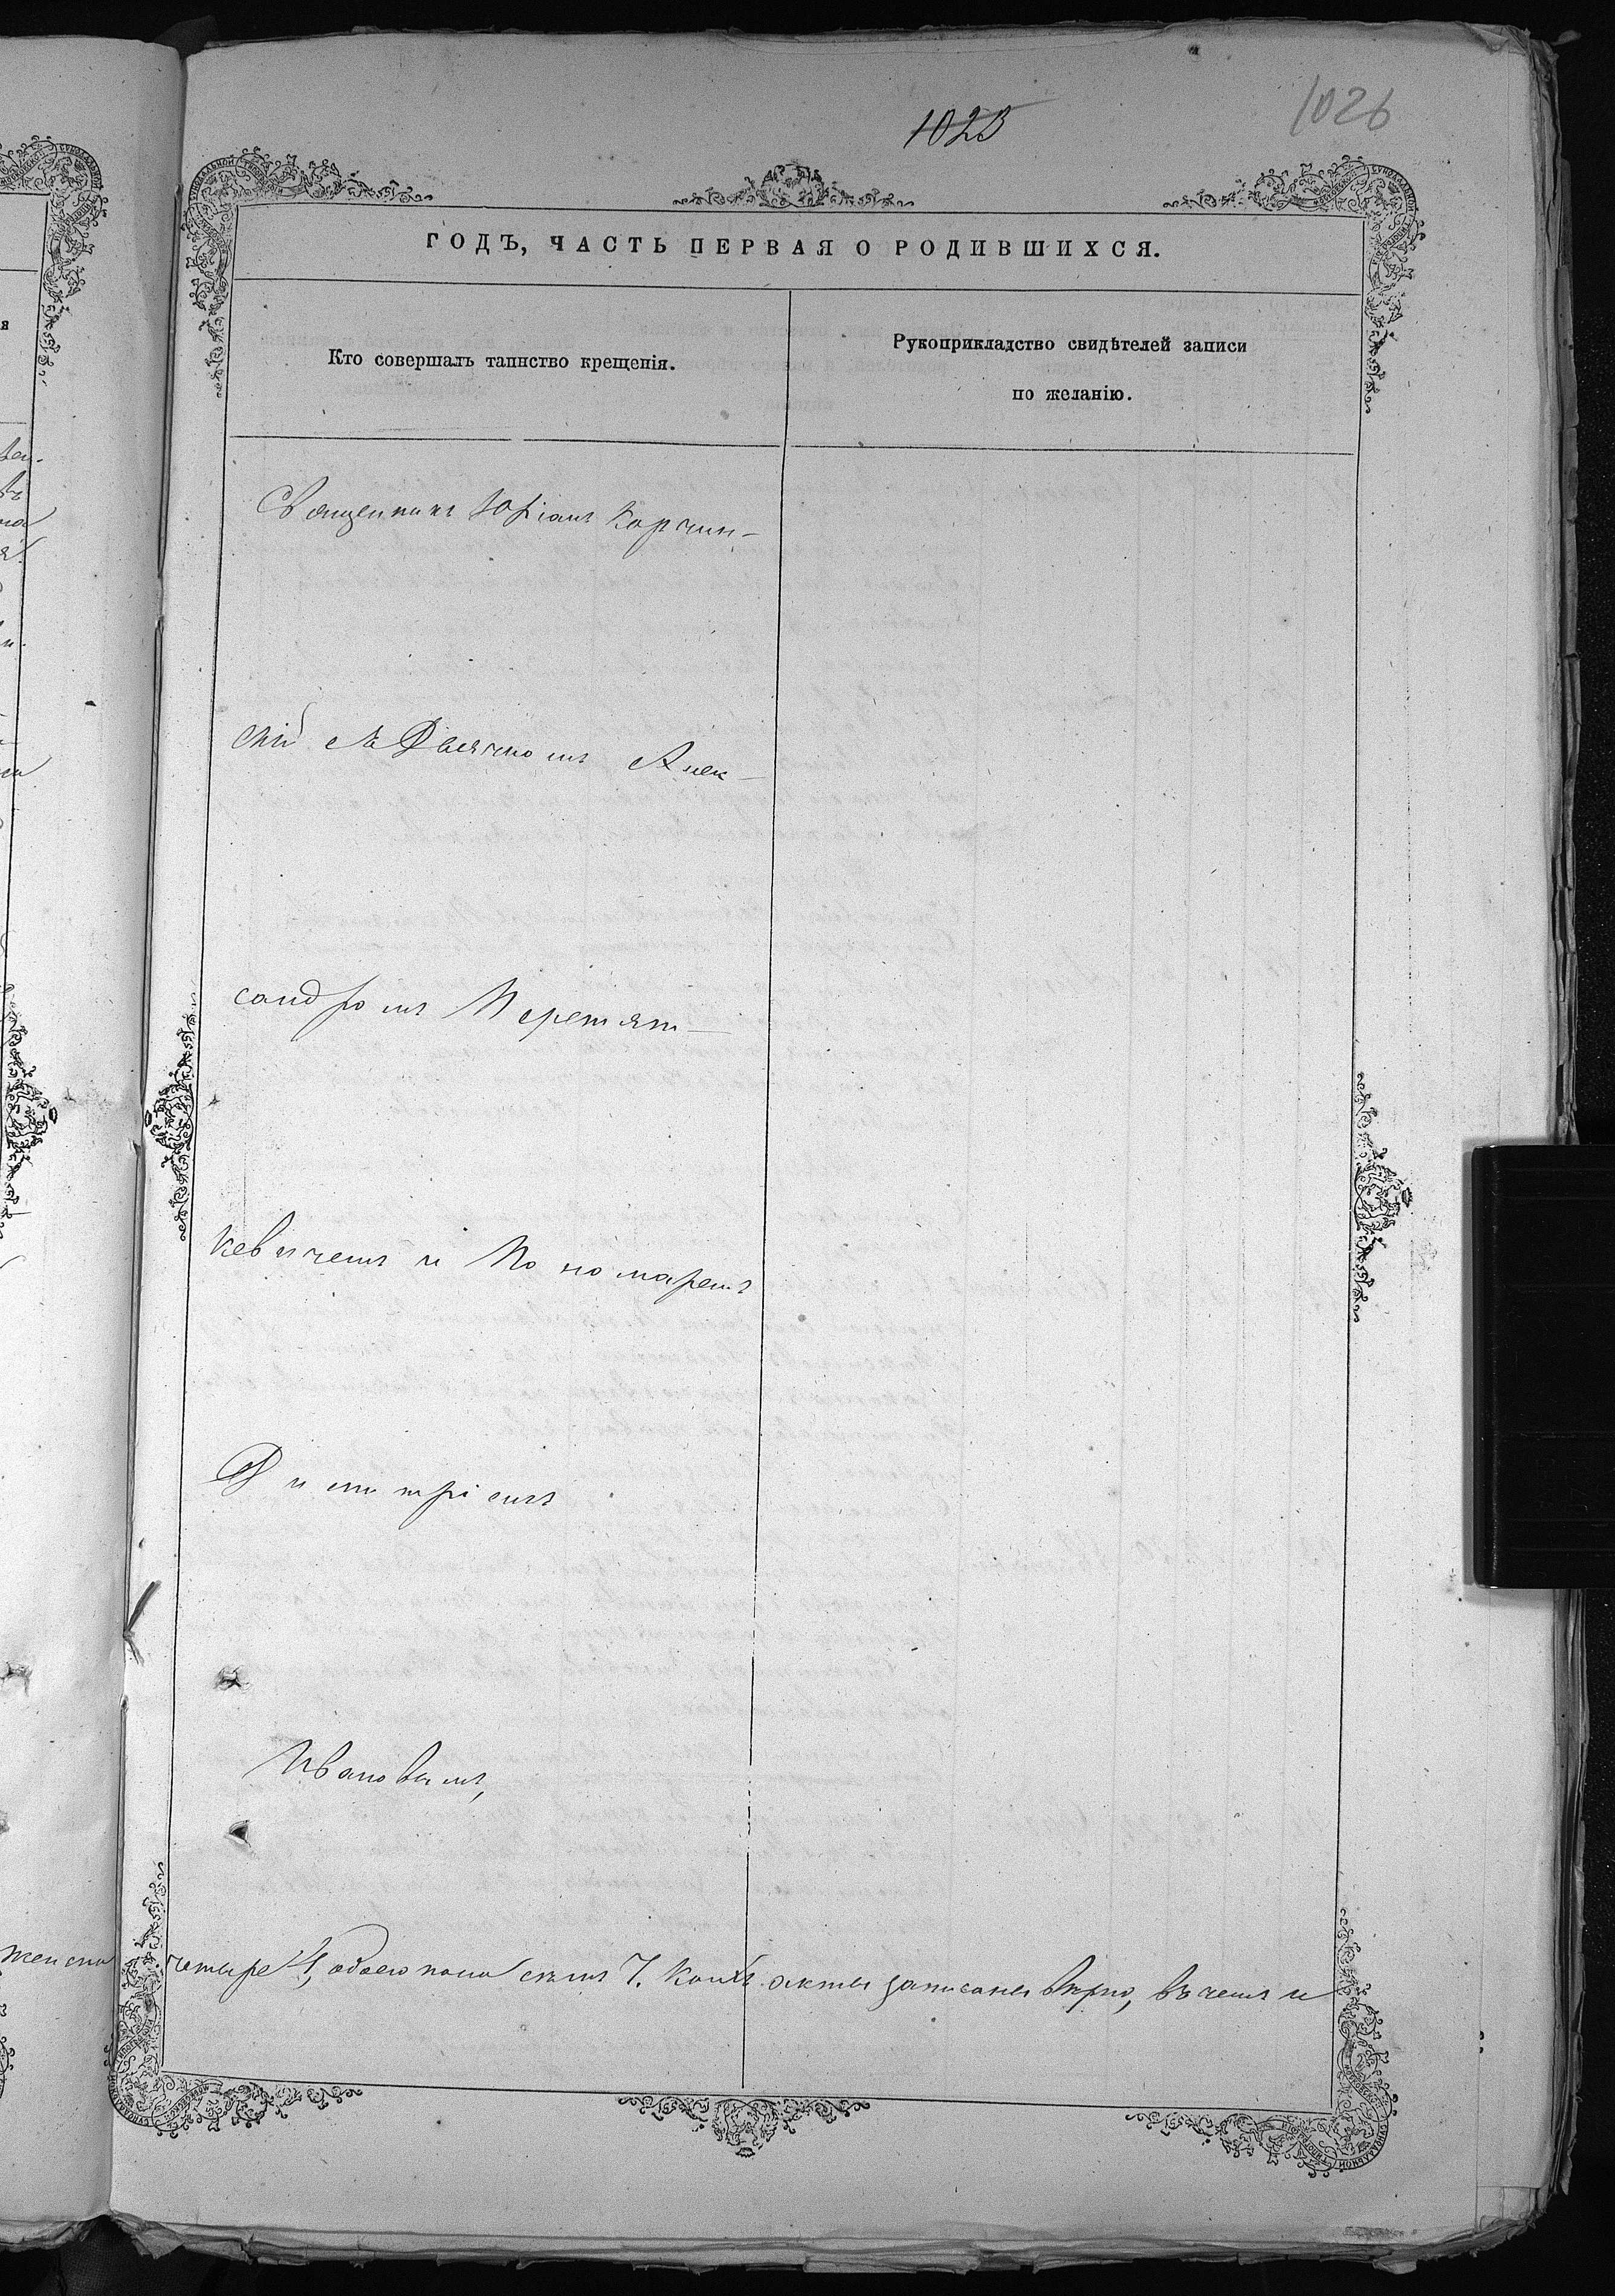 1023
1026
ГОДЪ, ЧАСТЬ ПЕРВАЯ О РОДИВШИХСЯ.
Кто совершалъ таинство крещенія.
Рукоприкладство свидѣтелей записи
по желанію.
Священникъ Юріанъ Корчин-
скій съ Дьячкомъ Алек-
сандромъ Перетят-
кевичемъ и Пономаремъ
Димитріемъ
Ивановымъ,
женска
четыре 4, обоего пола семь 7. Коихъ акты записаны вѣрно, въ чемъ и